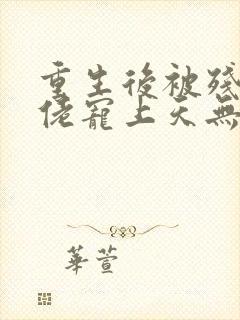 重生後被殘
佬寵上天無
華萱